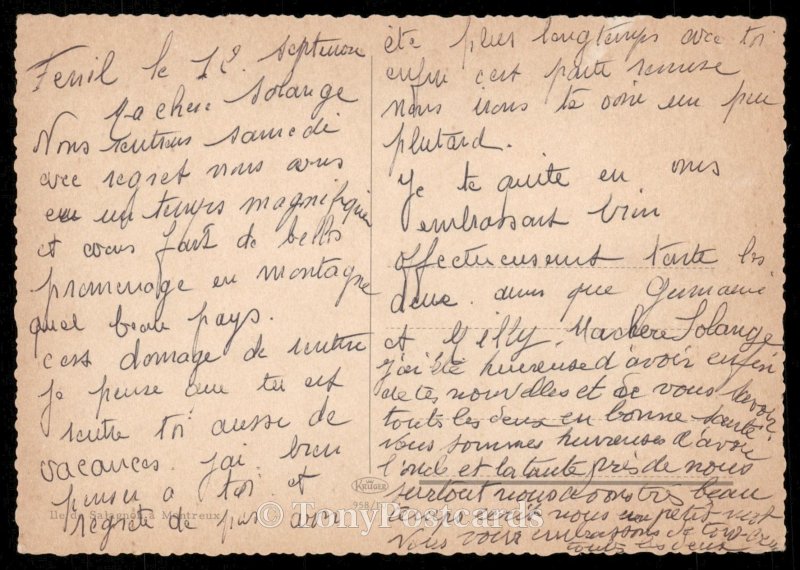 Feuil le 1e. Septembre
Ma chere Solange
Nous rentrons samedi
avec regret nous avons
eu un temps magnifique
et avons fait de belles
promenage en montagne
quel beau pays.
c'est domage de rentre
je pense que tu est
rentre toi aussi de
vacances. j'ai bien
penser a toi et
regrete de pas avoir
Ile de Salagnon à Montreux
été plus longtemps avec toi
enfin c'est partie remise
nous irons te voire un peu
plutard.
je te quite en vous
embrassant bien
affectueusement toute les
deux. ainsi que Germaine
et Gilly. Ma chère Solange
j'ai été heureuse d'avoir enfin
de tes nouvelles et de vous savoir
toutes les deux en bonne santé
nous sommes heureuses d'avoir
l'oncle et la tante près de nous
surtout nous avons très beau
temps nous un petit mot
Nous vous embrassons de tout cœur
toutes les deux
KRÜGER
958/1
© TonyPostcards